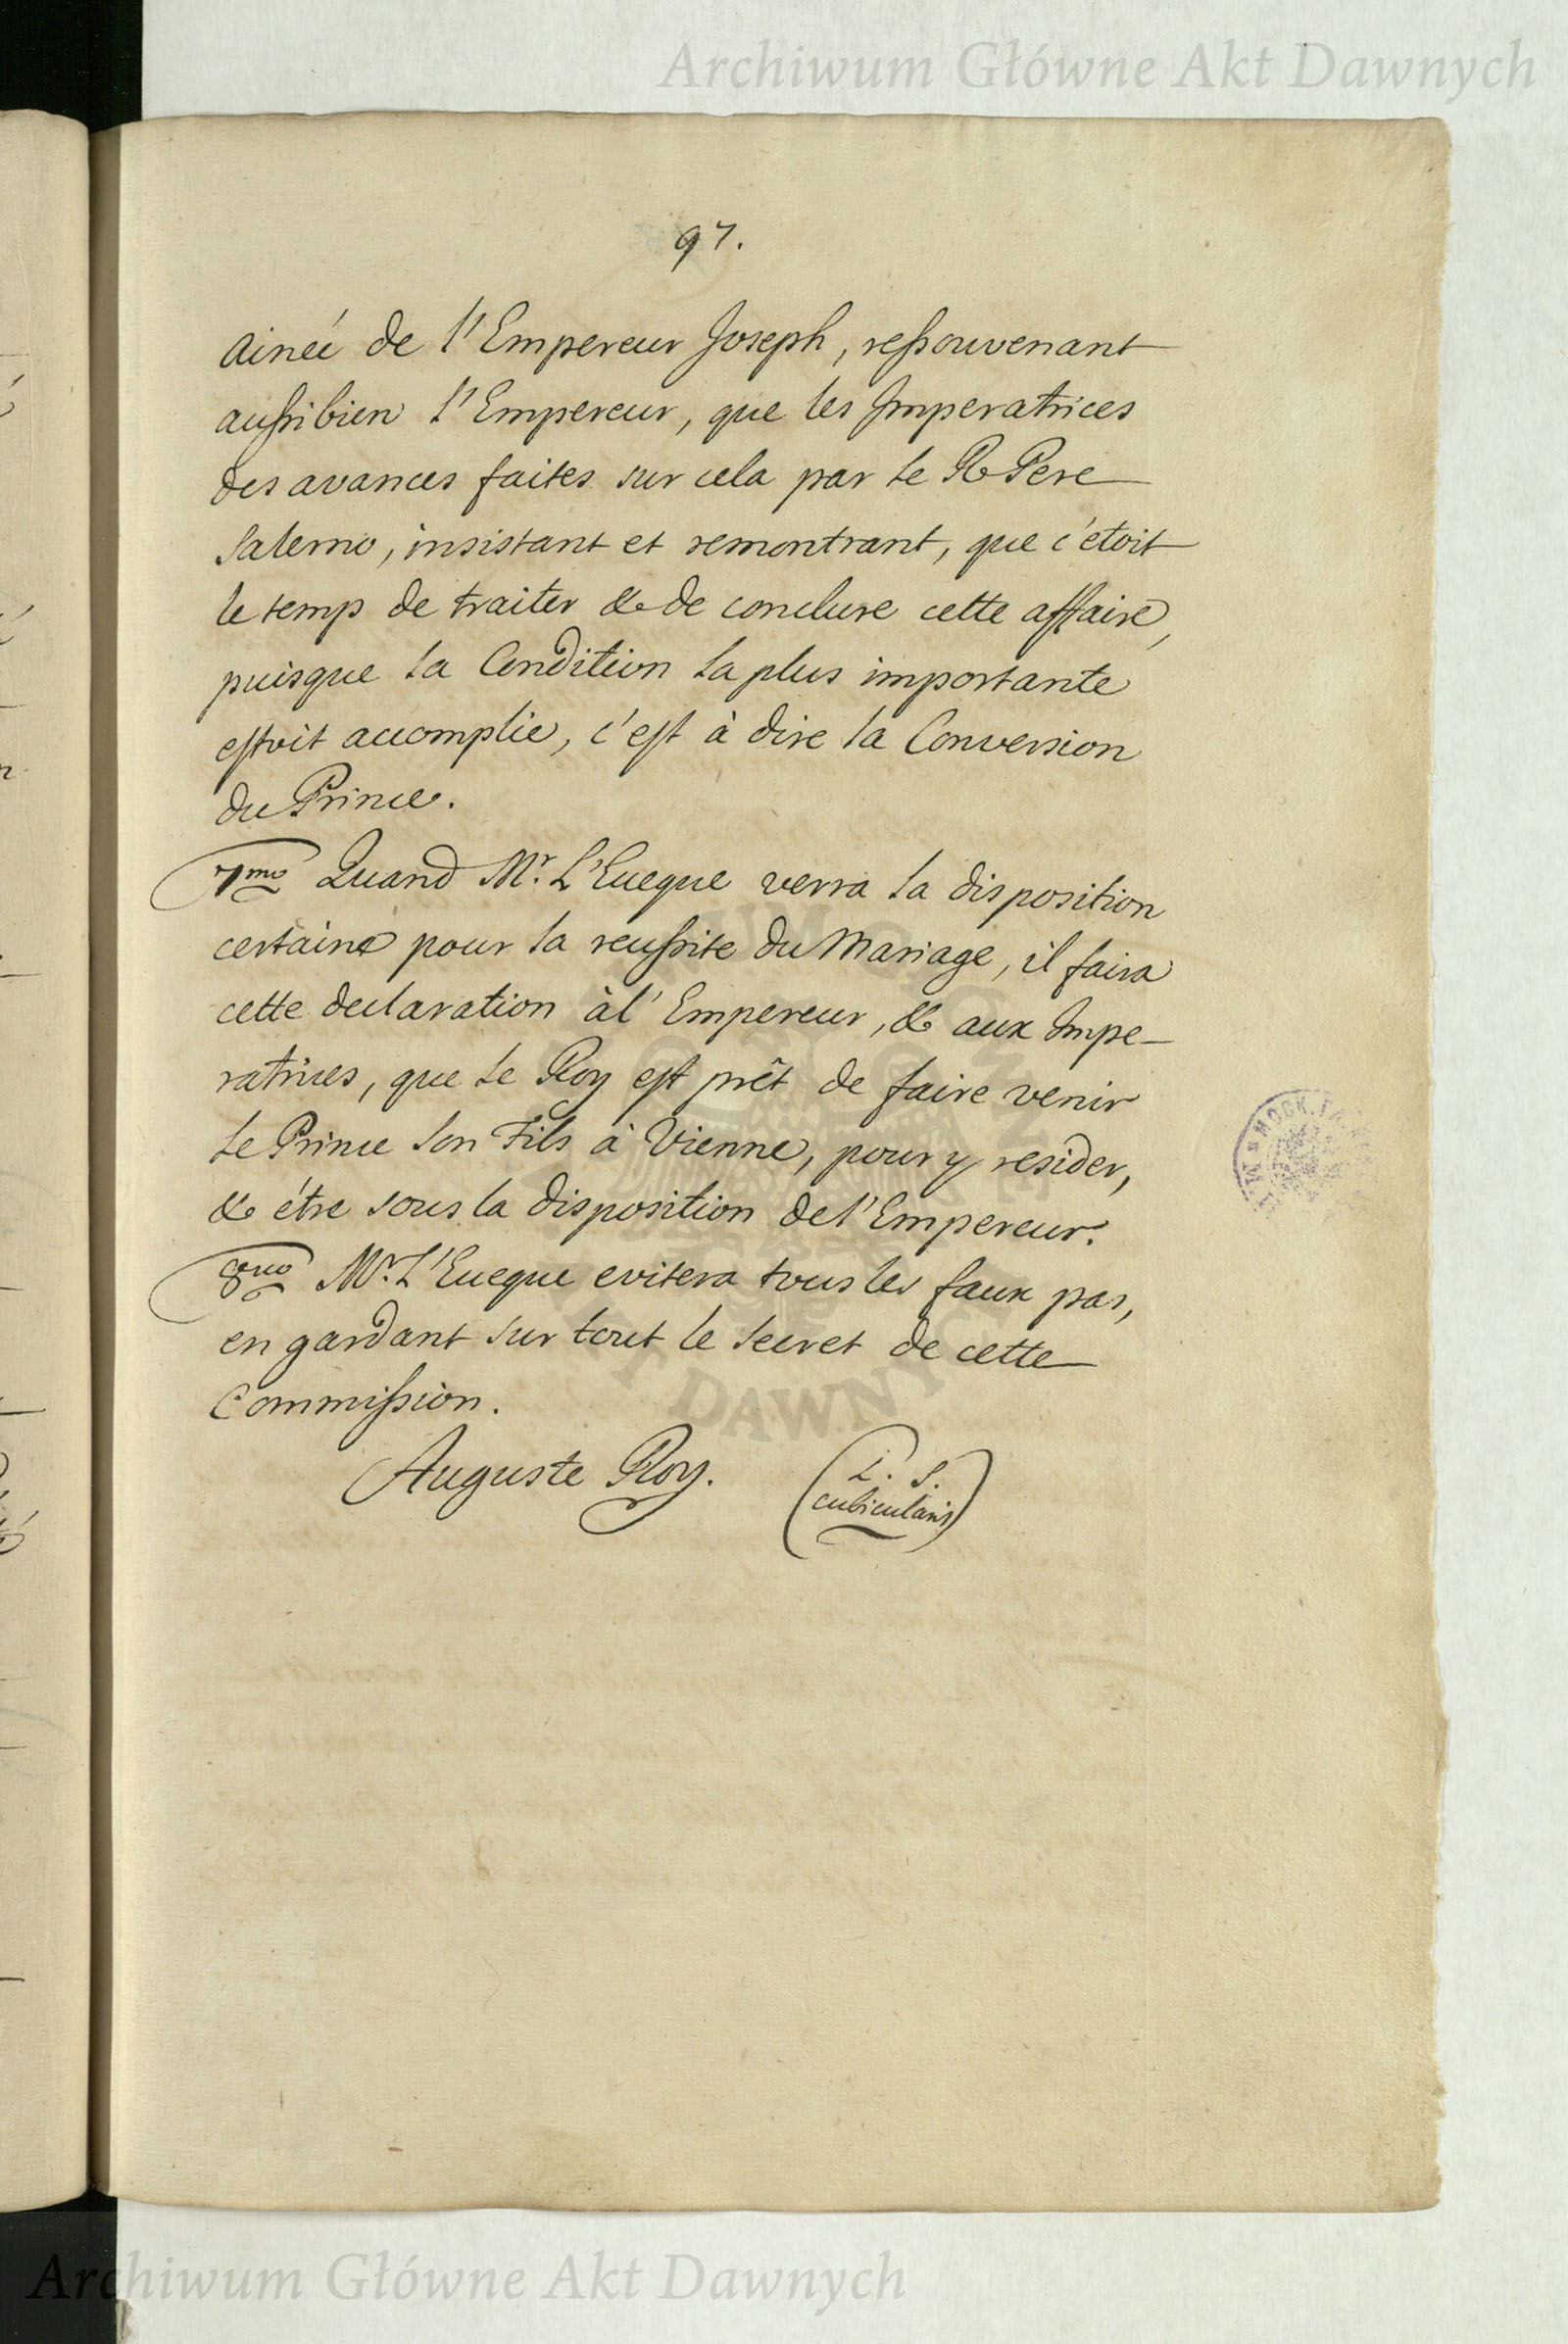 Archiwum Główne Akt Dawnych
97.
ainée de l'Empereur Joseph, ressouvenant
aussibien l'Empereur, que les Imperatrices
des avances faites sur cela par le R Pere
Salerno, insistant et remontrant, que c'étoit
le temp de traiter & de conclure cette affaire,
puisque la Condition la plus importante
estoit accomplie, c'est à dire la Conversion
du Prince.
7mo Quand Mr. L'Eueque verra la disposition
certaine pour la reussite du Mariage, il faira
cette declaration à l'Empereur, & aux Impe-
ratrices, que le Roy est prêt de faire venir
le Prince son Fils à Vienne, pour y resider,
& étre sous la disposition de l'Empereur.
8vo Mr. L'Eueque evitera tous les faux pas,
en gardant sur tout le secret de cette
Commission.
Auguste Roy. (L. S.
cubicularis)
DAWNYCH
Archiwum Główne Akt Dawnych